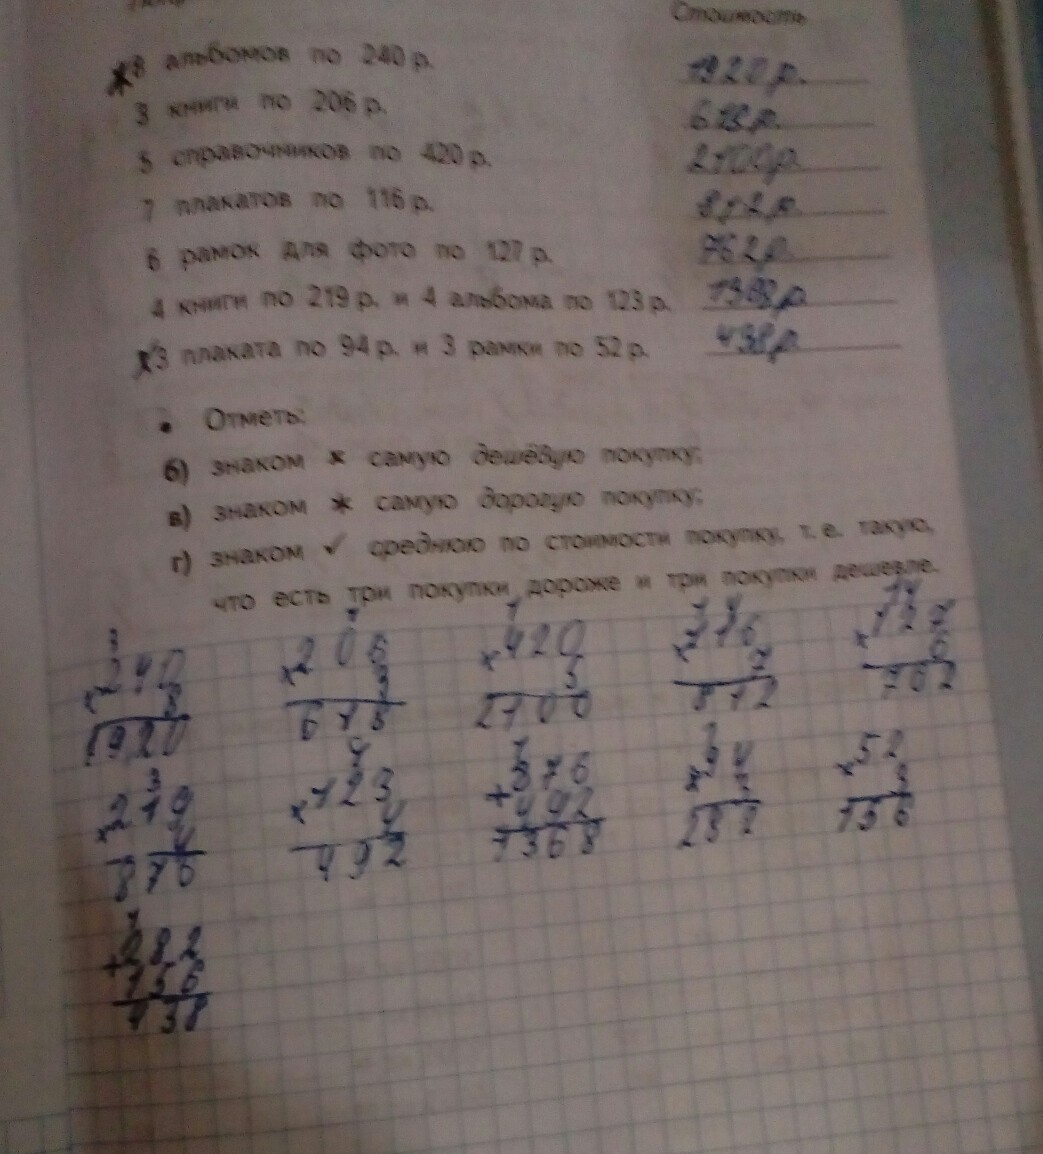 Стоимость
8 альбомов по 240 р. 1920 р.
3 книги по 206 р. 618 р.
5 справочников по 420 р. 2100 р.
7 плакатов по 116 р. 812 р.
6 рамок для фото по 127 р. 762 р.
4 книги по 219 р. и 4 альбома по 123 р. 1368 р.
3 плаката по 94 р. и 3 рамки по 52 р. 438 р.
• Отметь:
б) знаком × самую дешёвую покупку;
в) знаком ✶ самую дорогую покупку;
г) знаком ✓ среднюю по стоимости покупку, т. е. такую,
что есть три покупки дороже и три покупки дешевле.
3 1 1 1 4 1 4
×240 ×206 ×420 ×116 ×127
8 3 5 7 6
1920 618 2100 812 762
3 1 1 1
×219 ×123 +876 ×94 ×52
4 4 492 3 3
876 492 1368 282 156
1
+282
156
438